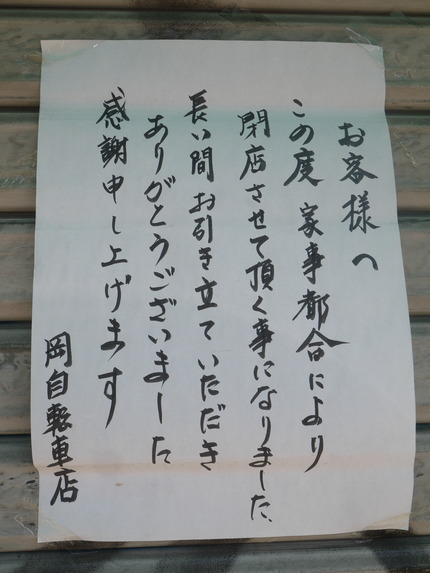 お客様へ
この度 家事都合により
閉店させて頂く事になりました、
長い間 お引き立ていただき
ありがとうございました
感謝申し上げます
岡自転車店